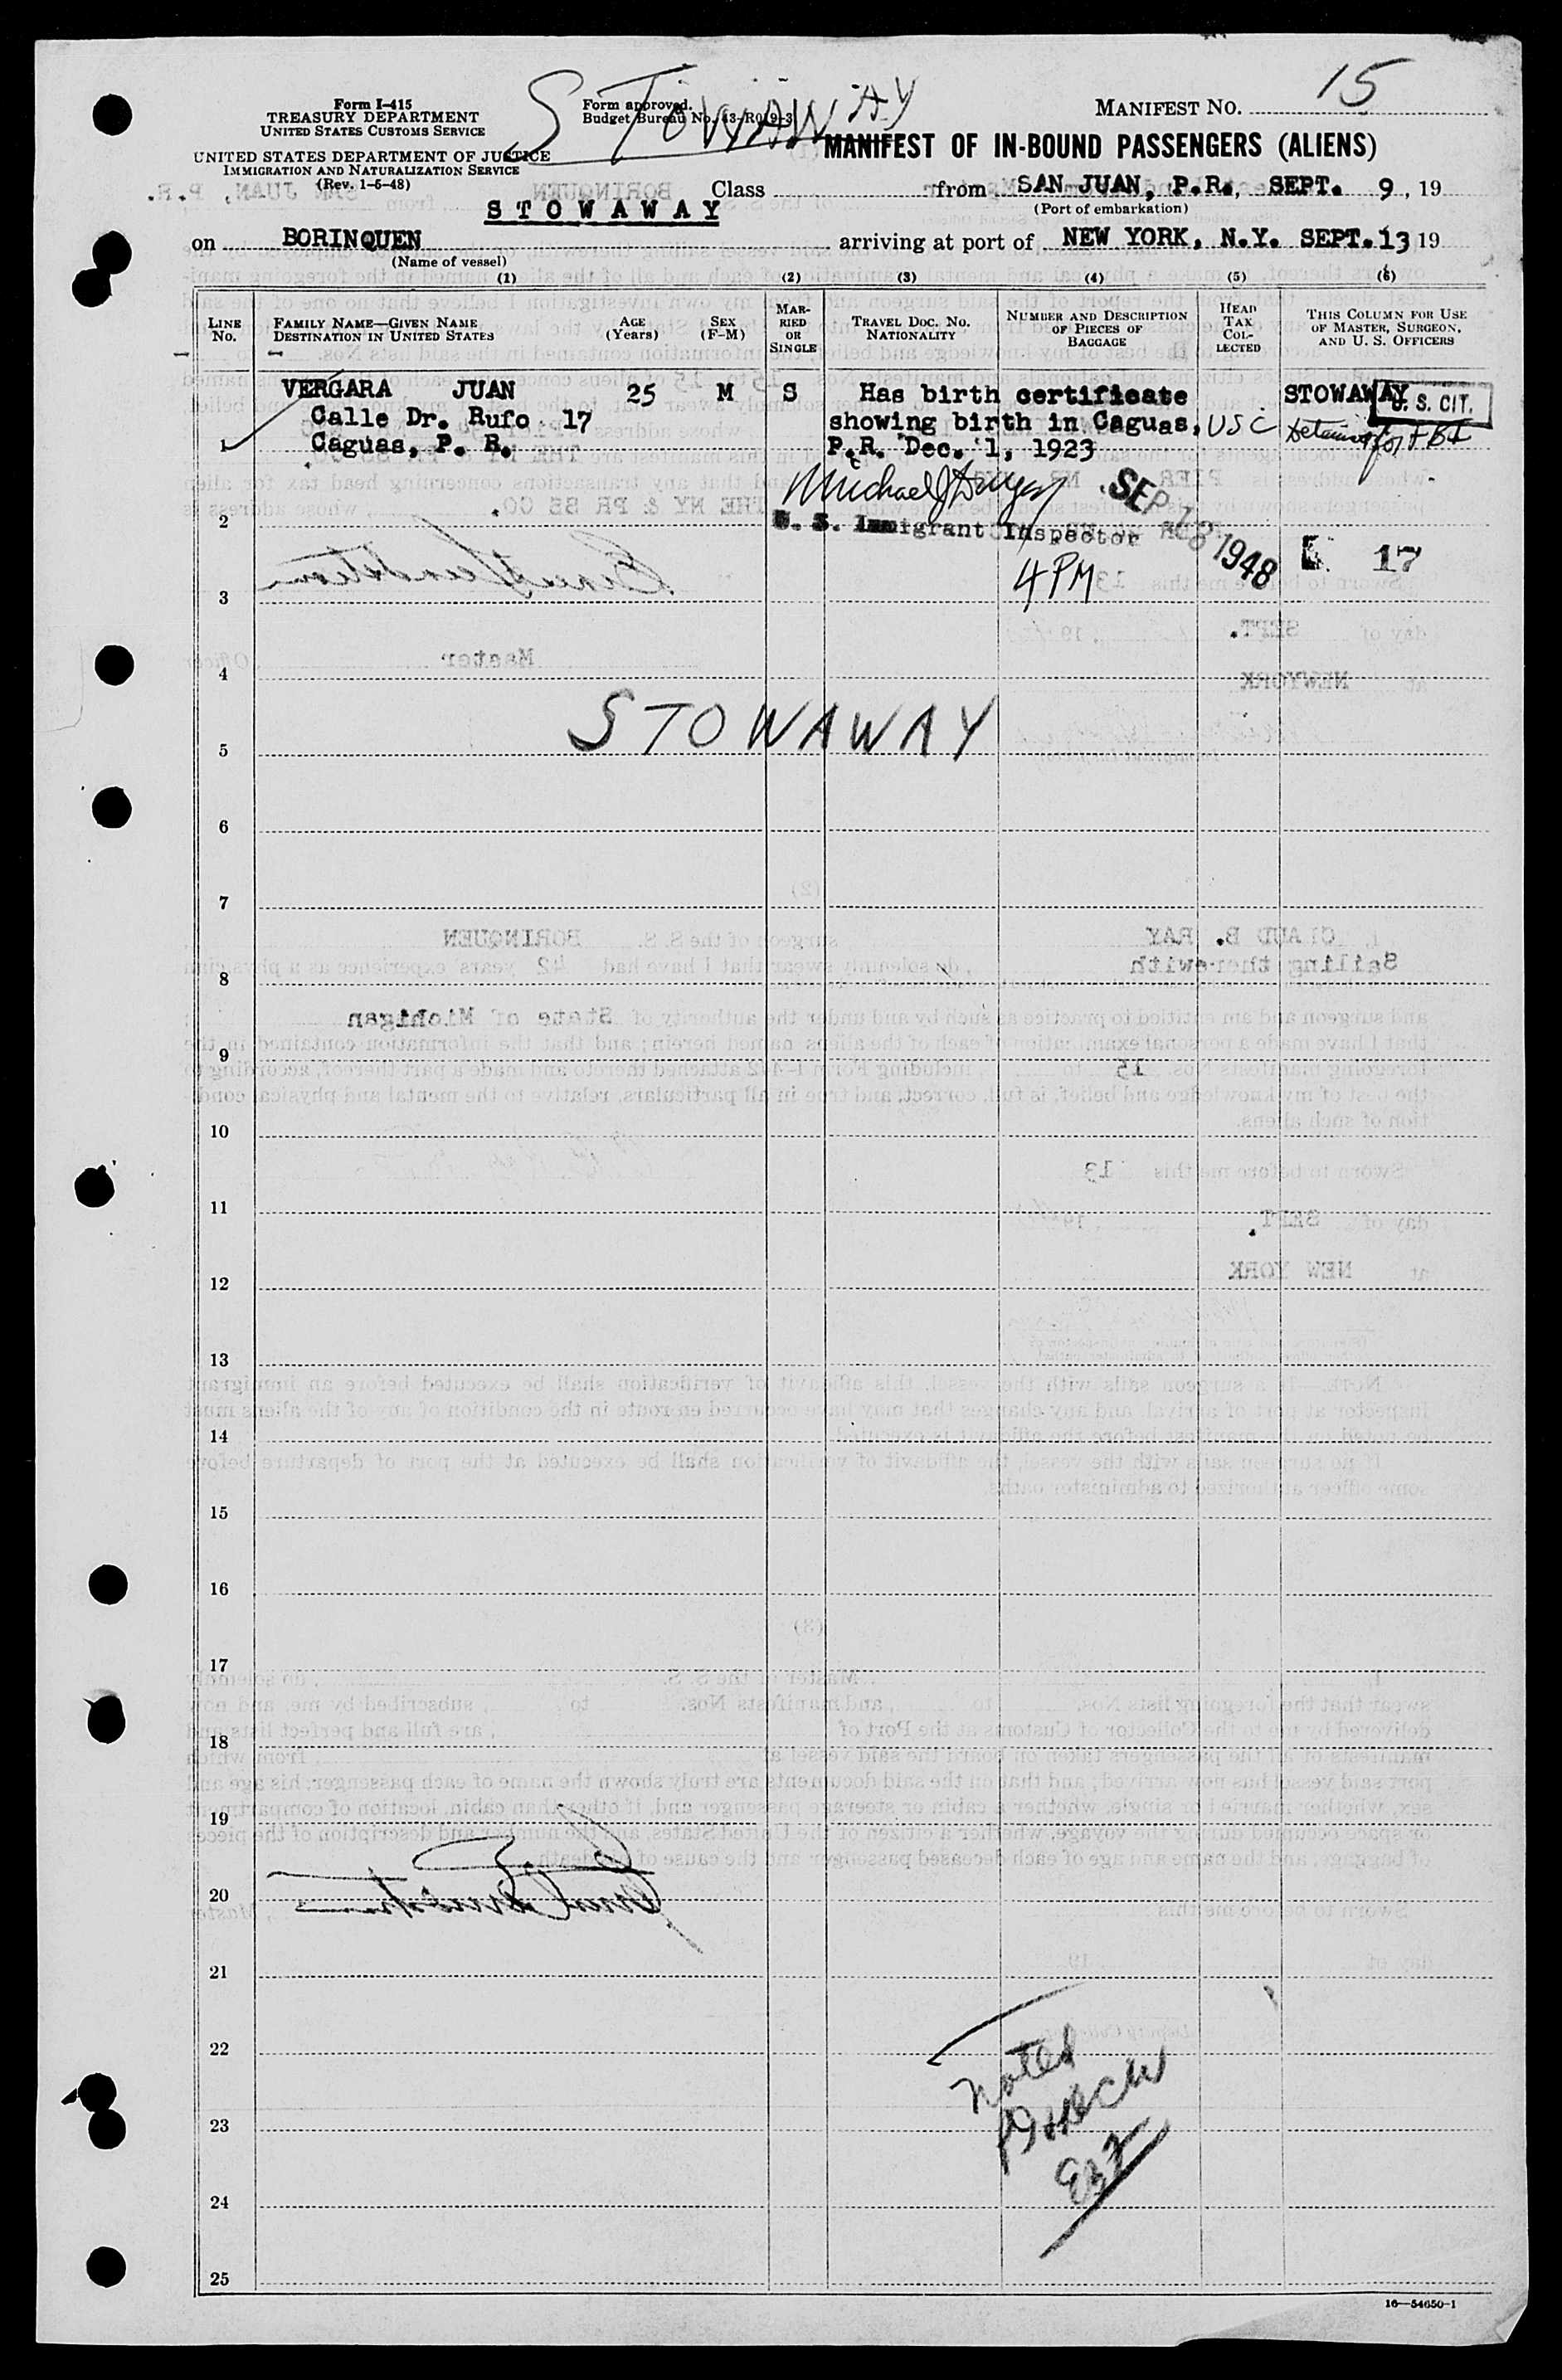 15
STOWAWAY
Form I-415
TREASURY DEPARTMENT
UNITED STATES CUSTOMS SERVICE
UNITED STATES DEPARTMENT OF JUSTICE
IMMIGRATION AND NATURALIZATION SERVICE
(Rev. 1-6-48)
Form approved.
Budget Bureau No. 43-R019-3
MANIFEST NO.
MANIFEST OF IN-BOUND PASSENGERS (ALIENS)
STOWAWAY
Class from SAN JUAN, P.R., SEPT. 9, 19
(Port of embarkation)
on BORINQUEN arriving at port of NEW YORK, N.Y. SEPT. 13 19
(Name of vessel)
(1) (2) (3) (4) (5) (6)
LINE No.
FAMILY NAME—GIVEN NAME
DESTINATION IN UNITED STATES
AGE (Years)
SEX (F-M)
MARRIED OR SINGLE
TRAVEL DOC. NO.
NATIONALITY
NUMBER AND DESCRIPTION OF PIECES OF BAGGAGE
HEAD TAX COLLECTED
THIS COLUMN FOR USE OF MASTER, SURGEON, AND U. S. OFFICERS
VERGARA JUAN 25 M S Has birth certificate STOWAWAY
U. S. CIT.
Calle Dr. Rufo 17 showing birth in Caguas, USC
1 Caguas, P. R. P.R. Dec. 1, 1923
for FBI
Michael J
SEP 13 1948
2 U. S. Immigrant Inspector
17
4 PM
3
4
STOWAWAY
5
6
7
8
9
10
11
12
13
14
15
16
17
18
19
20
21
22
noted
23
24
25
16—54650-1